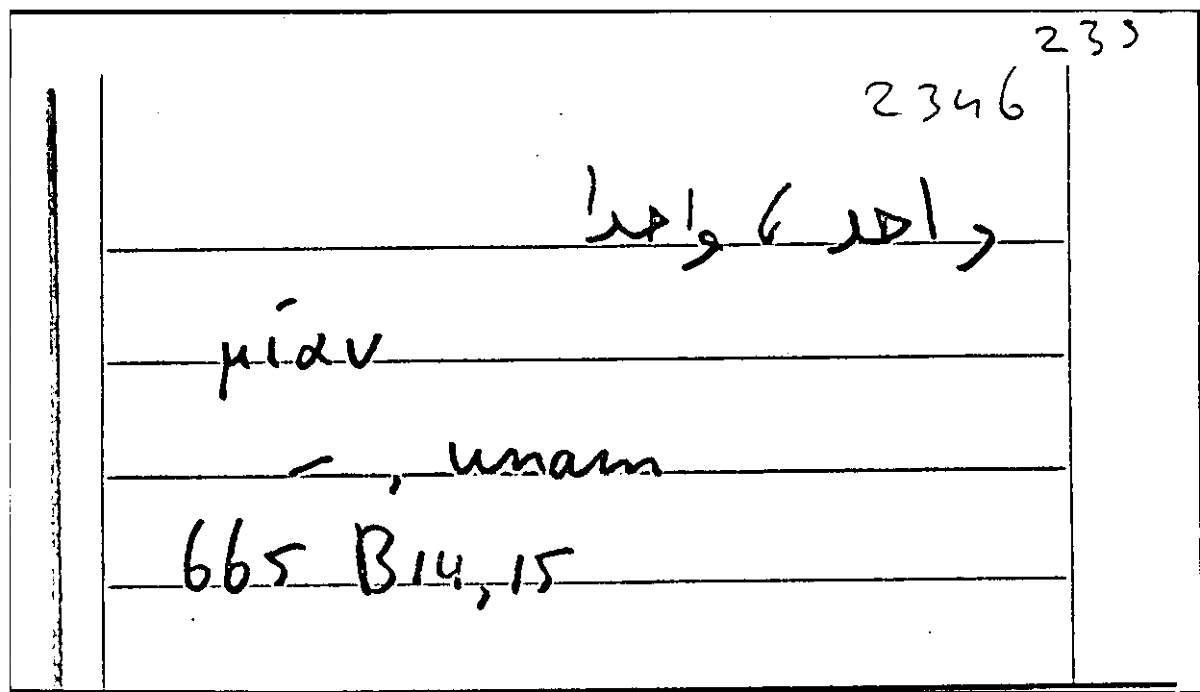 233
2346
واحد ، واحدا
μίαν
–, unam
665 B14,15